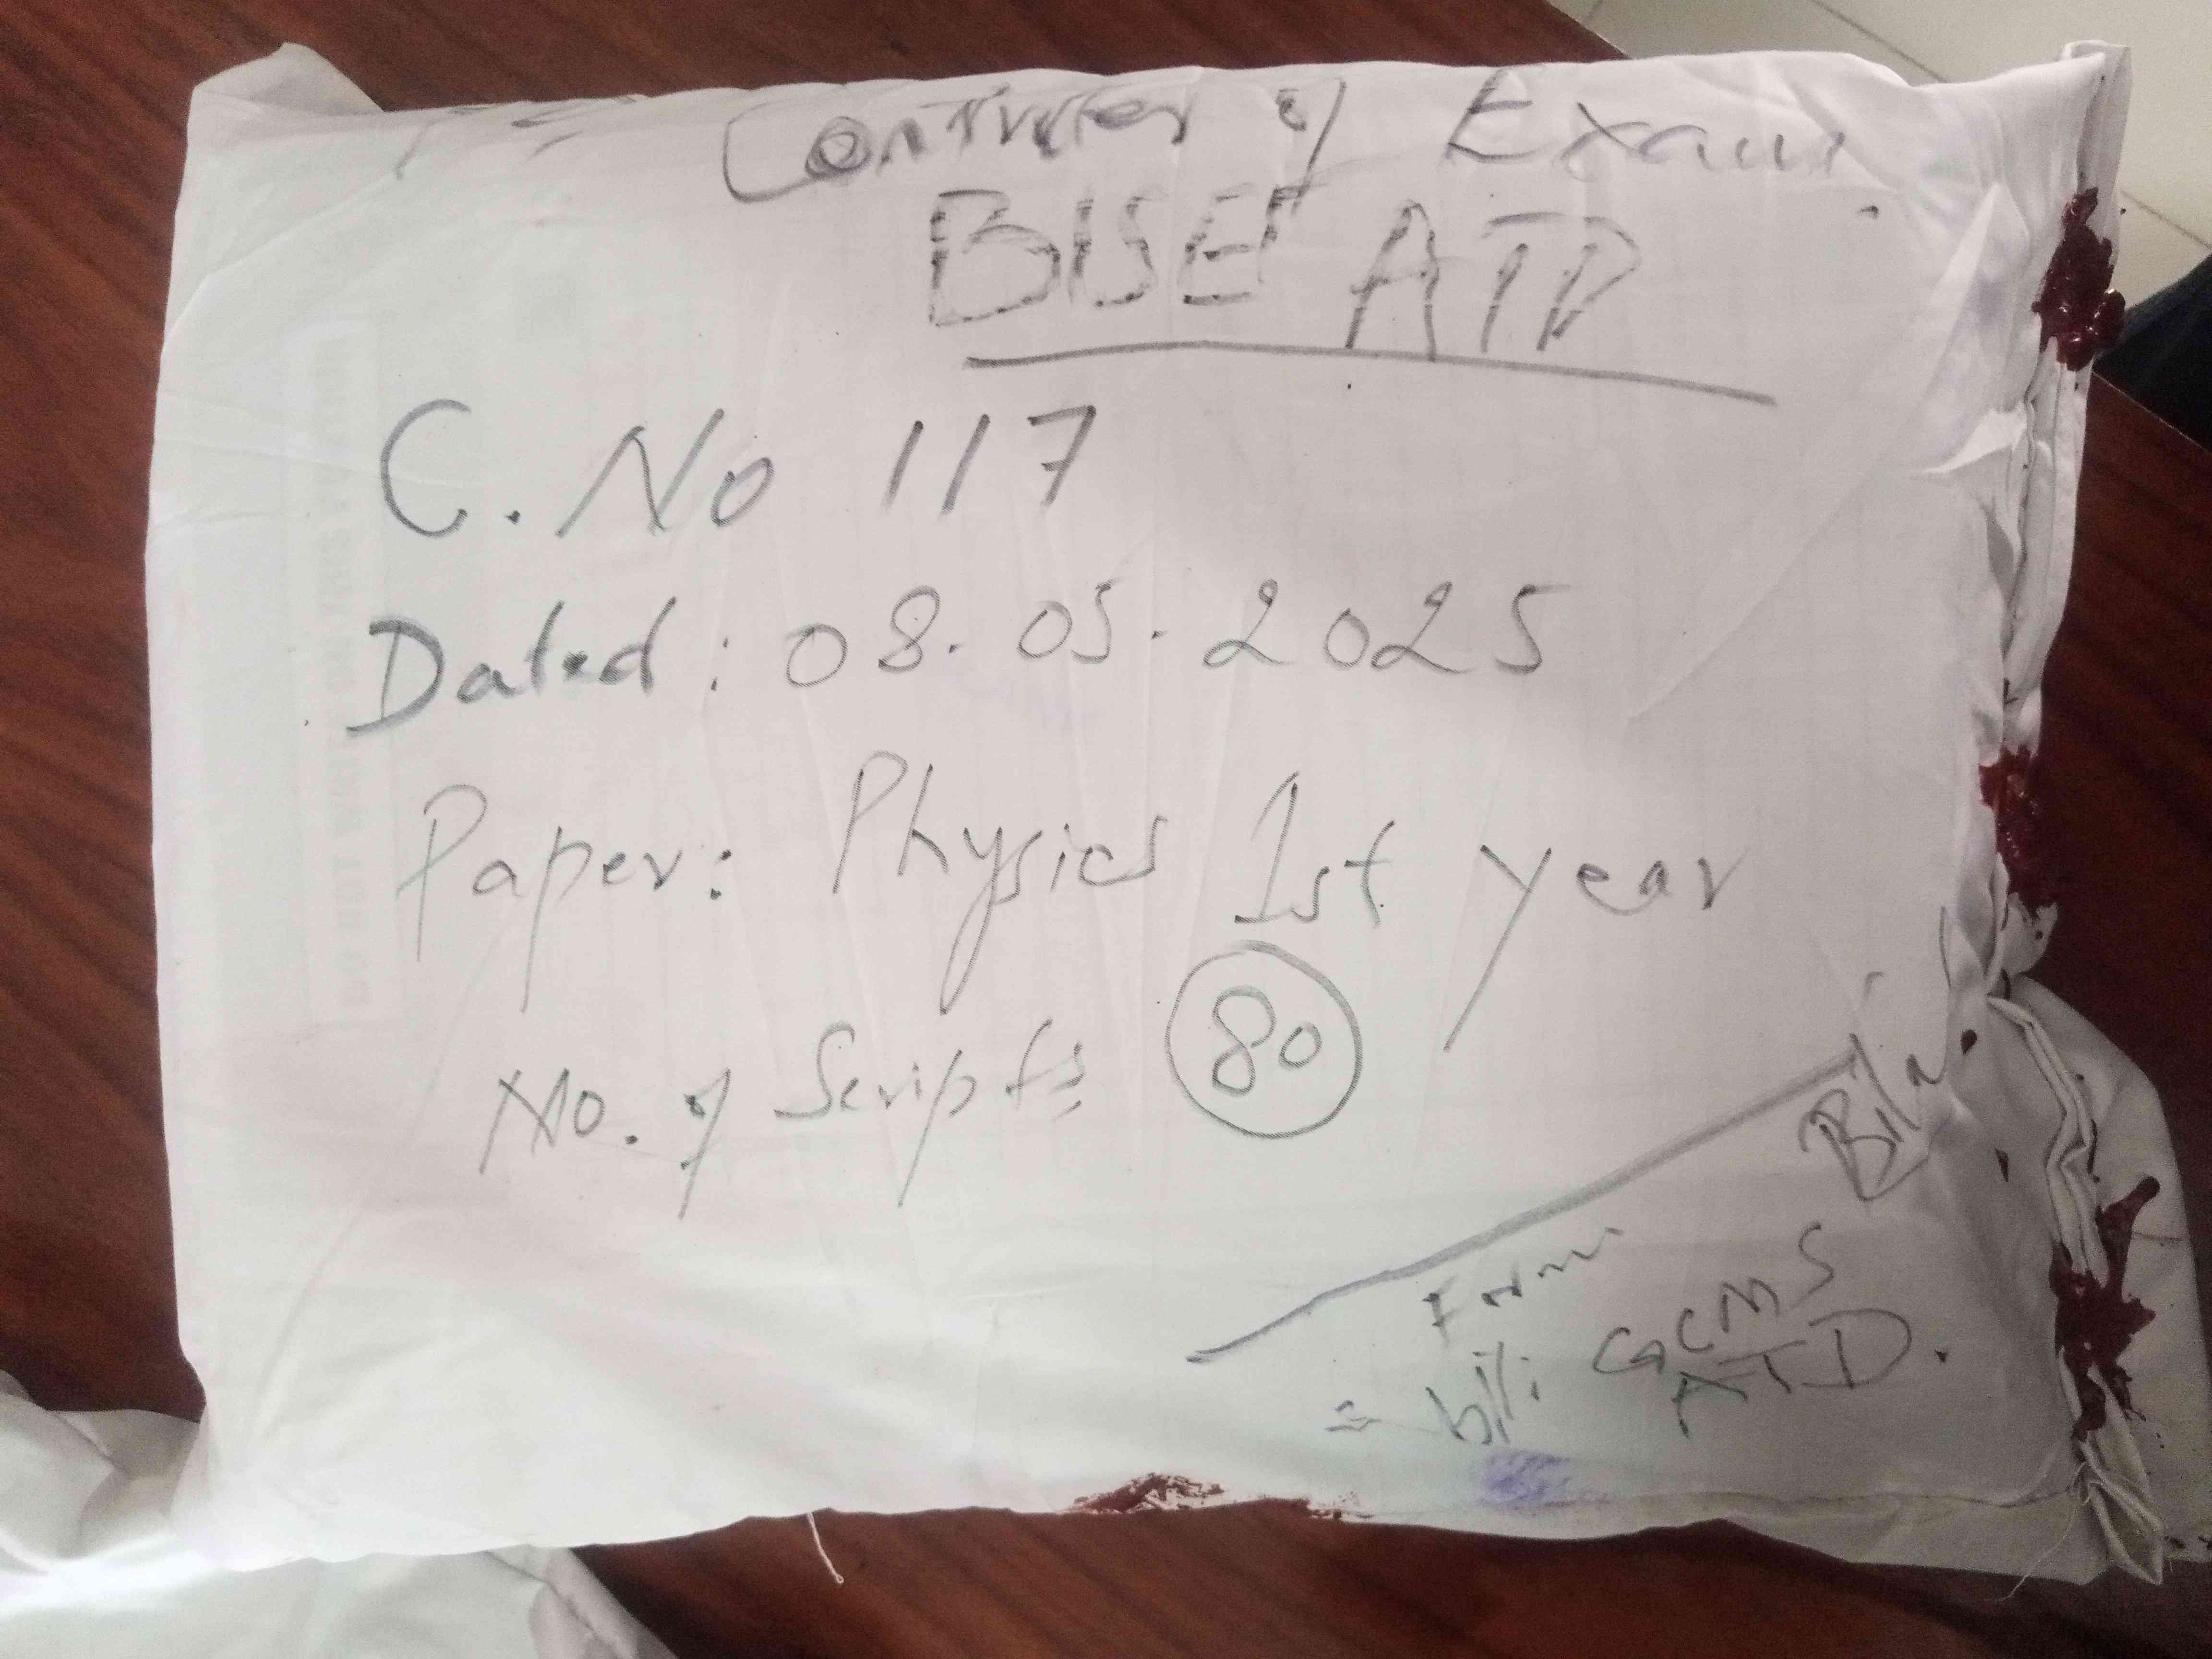 Controller of Exam.
BISE ATD
C. No 117
Dated: 08.05.2025
Paper: Physics 1st year
No. of Scripts 80
Bilal
From
GCMS
ATD.